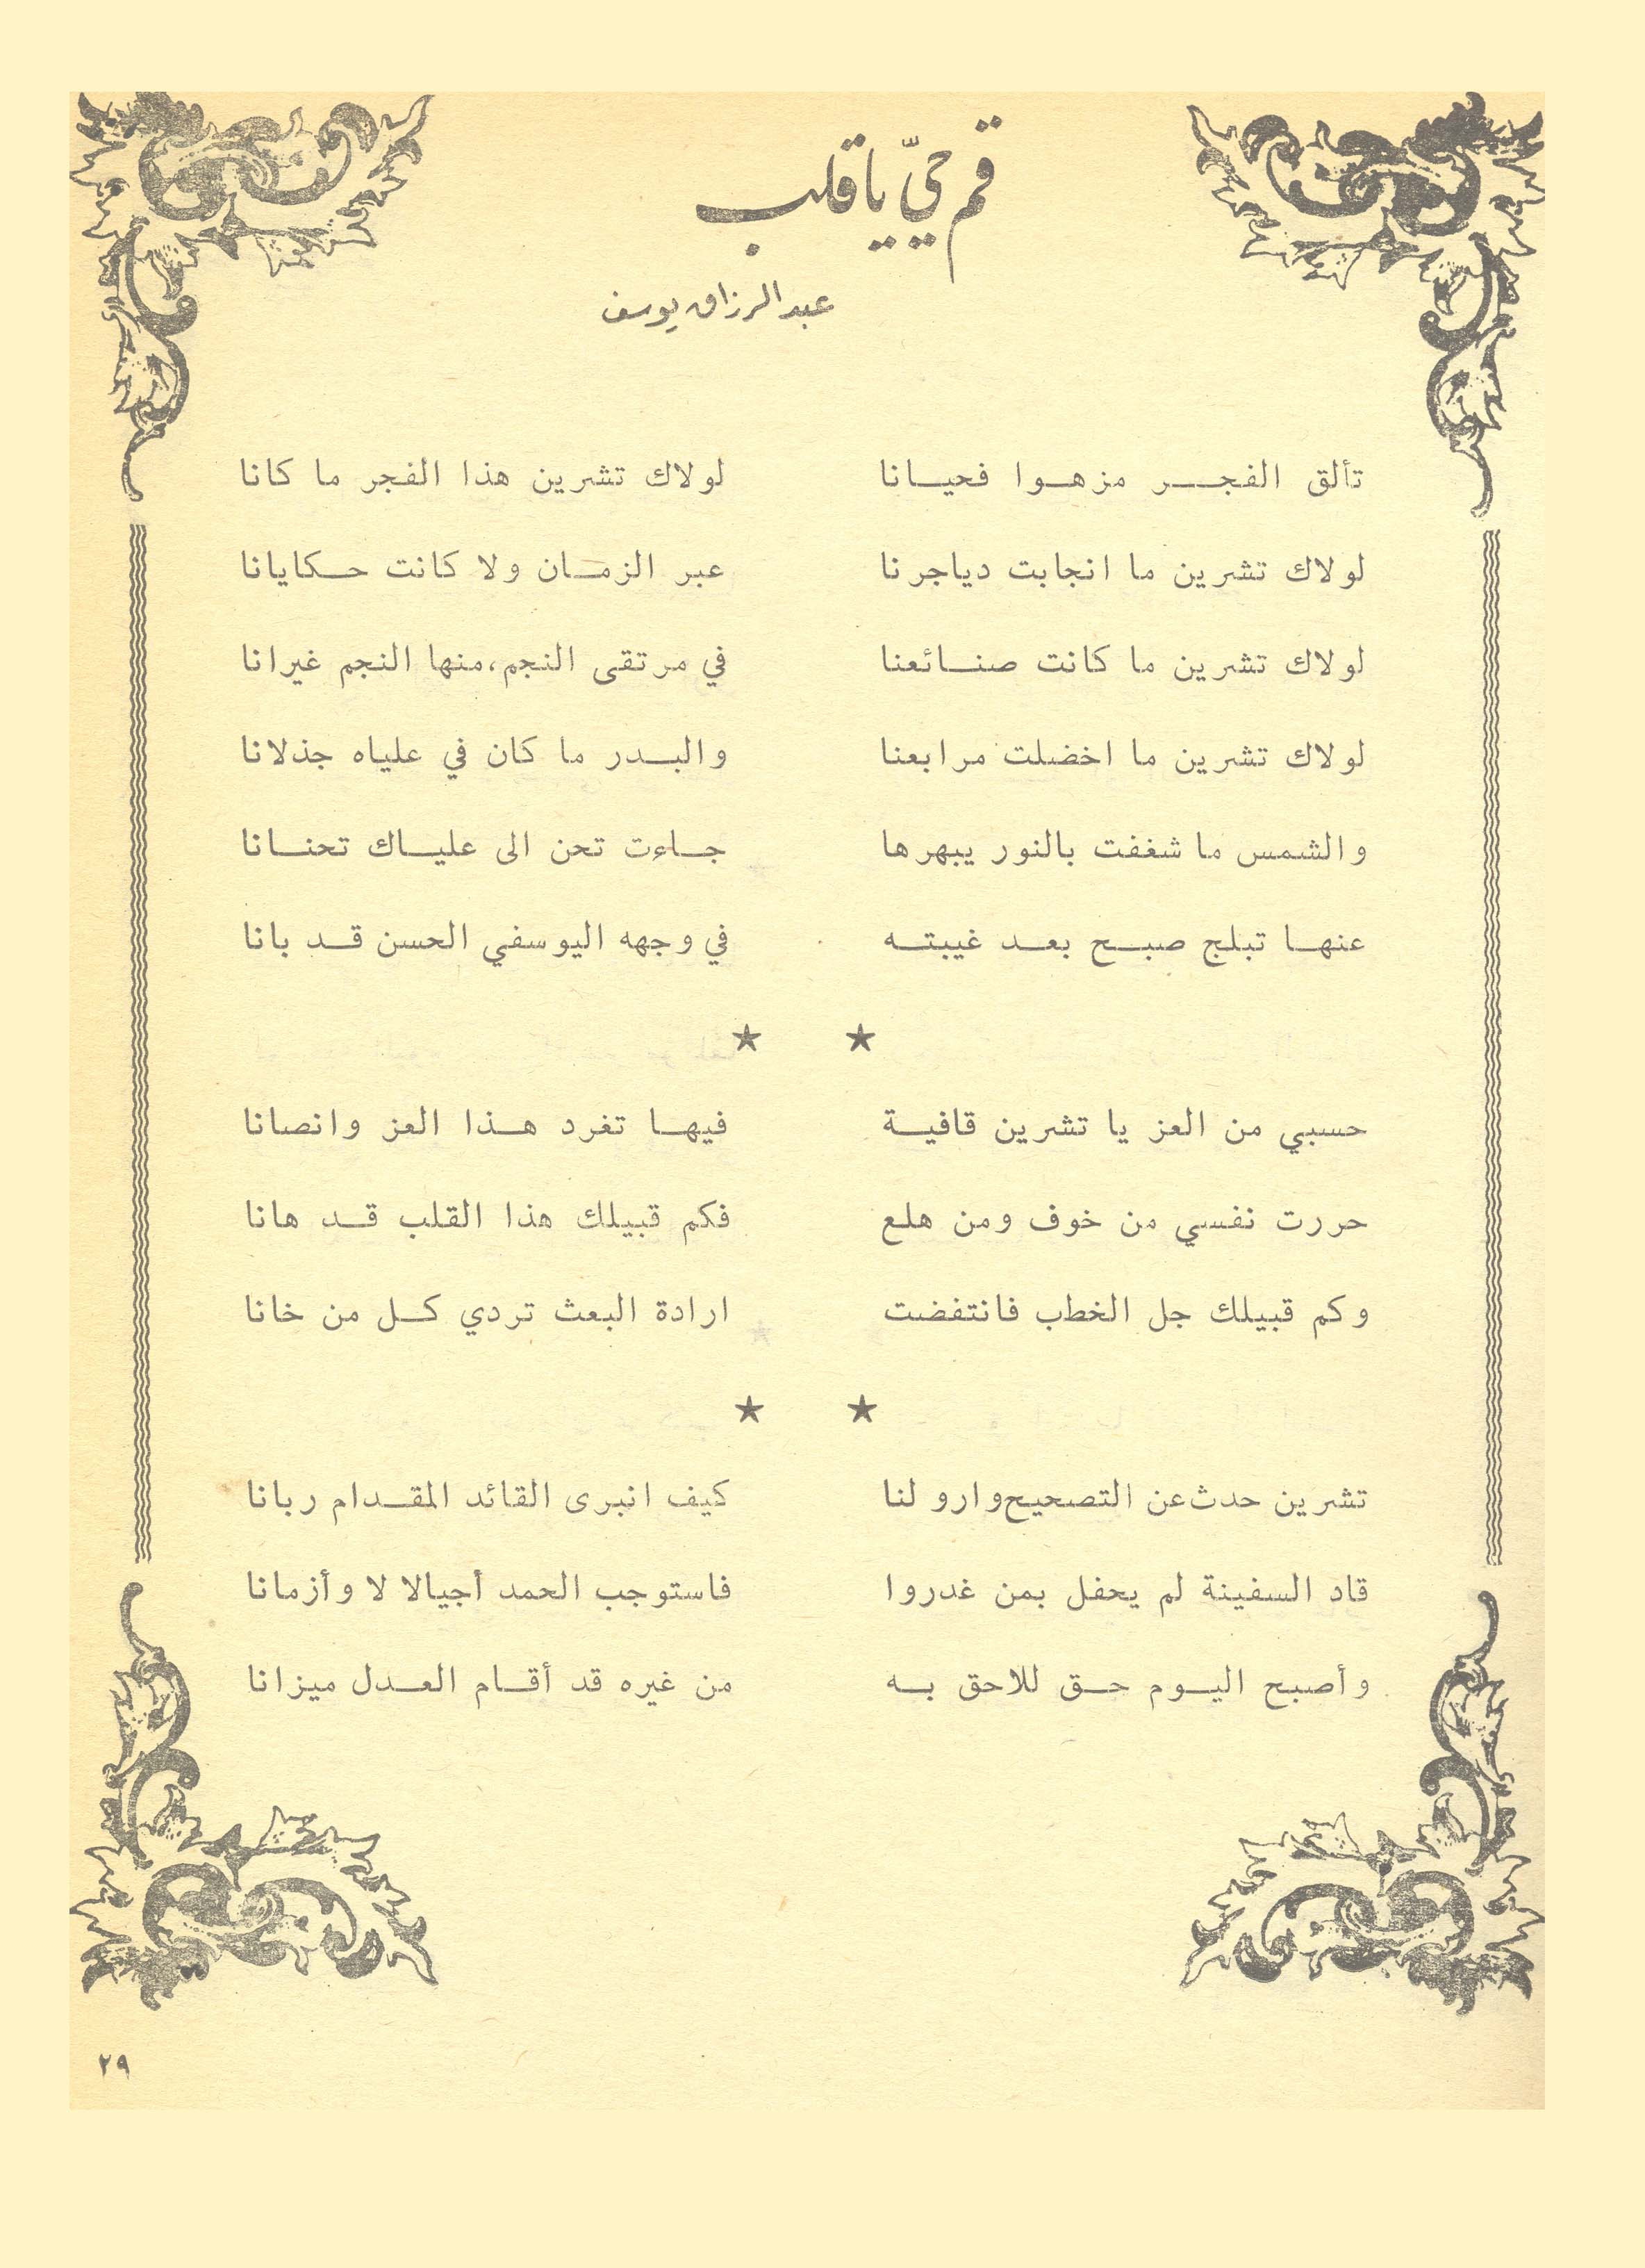 قم حيّ يا قلب
عبد الرزاق يوسف
تألق الفجر مزهوا فحيانا لولاك تشرين هذا الفجر ما كانا
لولاك تشرين ما انجابت دياجرنا عبر الزمان ولا كانت حكايانا
لولاك تشرين ما كانت صنائعنا في مرتقى النجم، منها النجم غيرانا
لولاك تشرين ما اخضلت مرابعنا والبدر ما كان في علياه جذلانا
والشمس ما شغفت بالنور يبهرها جاءت تحن الى علياك تحنانا
عنها تبلج صبح بعد غيبته في وجهه اليوسفي الحسن قد بانا
★ ★
حسبي من العز يا تشرين قافية فيها تغرد هذا العز وانصانا
حررت نفسي من خوف ومن هلع فكم قبيلك هذا القلب قد هانا
وكم قبيلك جل الخطب فانتفضت ارادة البعث تردي كل من خانا
★ ★
تشرين حدث عن التصحيح وارو لنا كيف انبرى القائد المقدام ربانا
قاد السفينة لم يحفل بمن غدروا فاستوجب الحمد أجيالا لا وأزمانا
وأصبح اليوم حق للاحق به من غيره قد أقام العدل ميزانا
٢٩